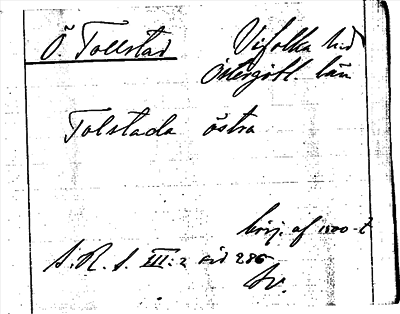 Ö. Tollstad Vifolka hd
Östergötl. län
Tolstada östra
börj. af 1500-t
S.R.S. III:2 sid 286
Sv.